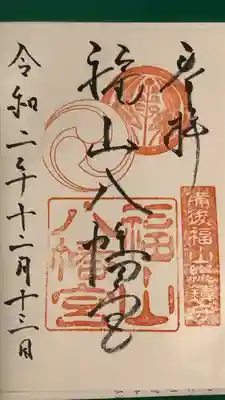 奉拝
備後福山総鎮守
福山八幡宮
福山
八幡宮
令和二年十二月十三日